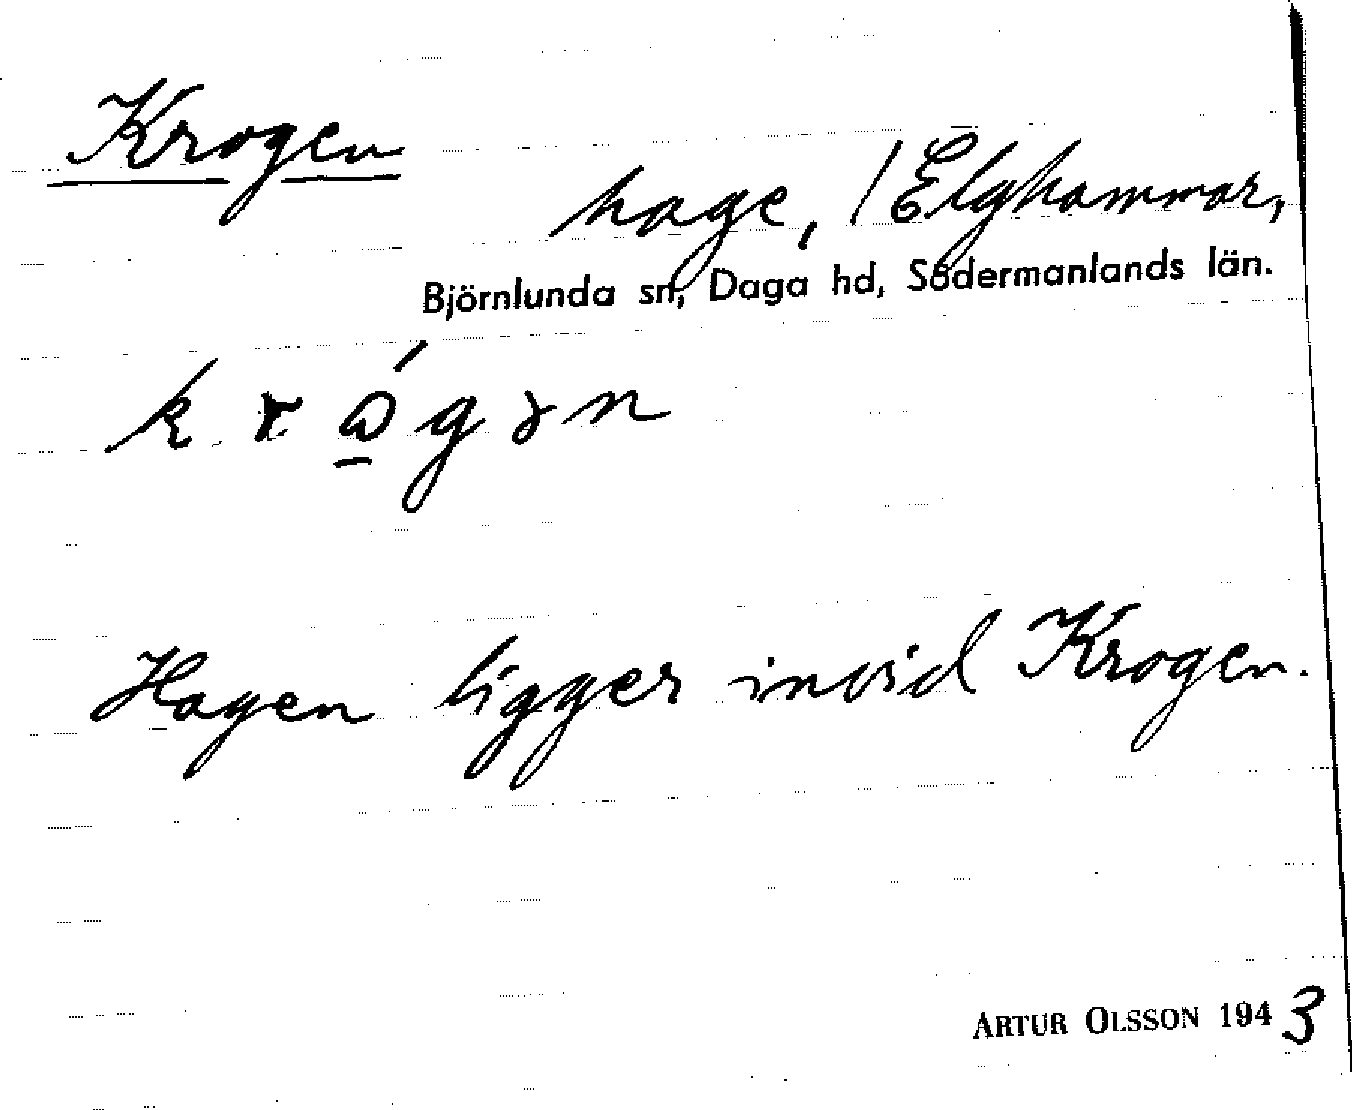 Krogen
hage, / Elghammar,
Björnlunda sn, Daga hd, Södermanlands län.
Hagen ligger invid Krogen.
ARTUR OLSSON 1943